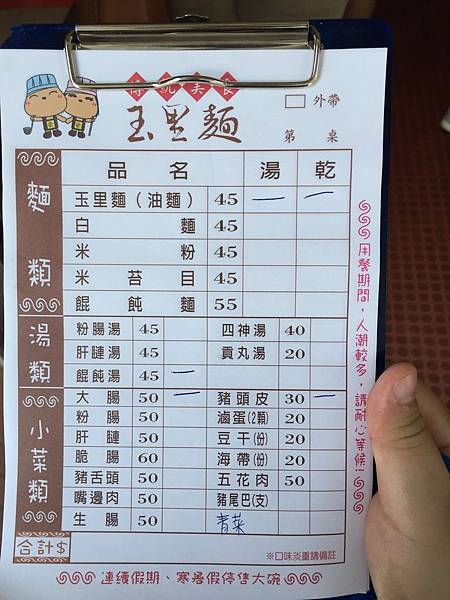 傳統美食
玉里麵
外帶
第 桌
品名 湯 乾
麵類
玉里麵（油麵） 45 一 一
白麵 45
米粉 45
米苔目 45
餛飩麵 55
湯類
粉腸湯 45 四神湯 40
肝膁湯 45 貢丸湯 20
餛飩湯 45 二
小菜類
大腸 50 一 豬頭皮 30 一
粉腸 50 滷蛋(2顆) 20
肝膁 50 豆干(份) 20
脆腸 60 海帶(份) 20
豬舌頭 50 五花肉 50
嘴邊肉 50 豬尾巴(支)
生腸 50 青菜
合計$
※口味淡重請備註
用餐期間，人潮較多，請耐心等候!
連續假期、寒暑假停售大碗